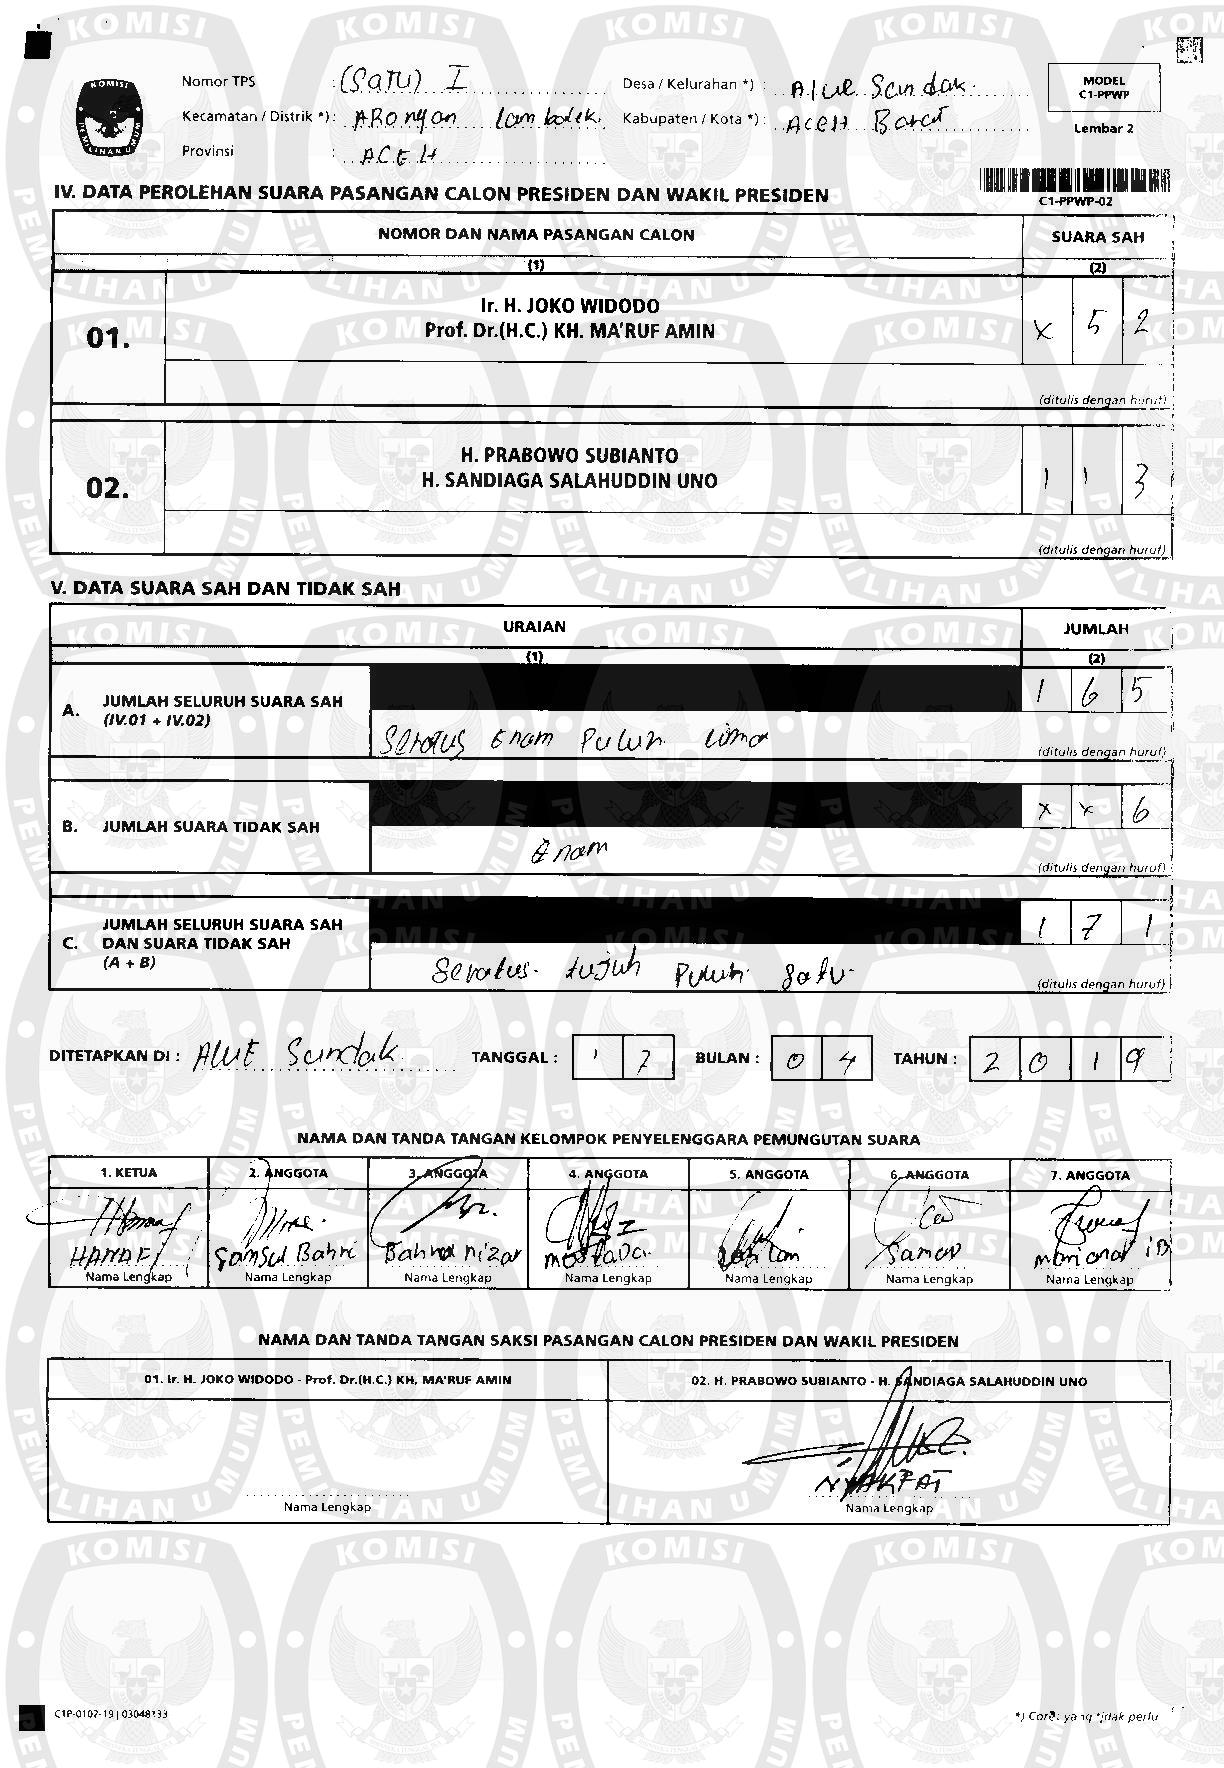 Nomor TPS : (Satu) I
Desa / Kelurahan *) : Alue Sundak
MODEL
C1-PPWP
Kecamatan / Distrik *) : ARongan Lambalek
Kabupaten / Kota *) : Aceh Barat
Lembar 2
Provinsi : ACEH
IV. DATA PEROLEHAN SUARA PASANGAN CALON PRESIDEN DAN WAKIL PRESIDEN
C1-PPWP-02
NOMOR DAN NAMA PASANGAN CALON SUARA SAH
(1) (2)
01. Ir. H. JOKO WIDODO
Prof. Dr.(H.C.) KH. MA'RUF AMIN
X 5 2
(ditulis dengan huruf)
02. H. PRABOWO SUBIANTO
H. SANDIAGA SALAHUDDIN UNO
1 1 3
(ditulis dengan huruf)
V. DATA SUARA SAH DAN TIDAK SAH
URAIAN JUMLAH
(1) (2)
A. JUMLAH SELURUH SUARA SAH
(IV.01 + IV.02)
1 6 5
Seratus Enam Puluh Lima
(ditulis dengan huruf)
B. JUMLAH SUARA TIDAK SAH
X X 6
Enam
(ditulis dengan huruf)
C. JUMLAH SELURUH SUARA SAH
DAN SUARA TIDAK SAH
(A + B)
1 7 1
Seratus tujuh Puluh Satu
(ditulis dengan huruf)
DITETAPKAN DI : AluE Sundak TANGGAL : 1 7 BULAN : 0 4 TAHUN : 2 0 1 9
NAMA DAN TANDA TANGAN KELOMPOK PENYELENGGARA PEMUNGUTAN SUARA
1. KETUA 2. ANGGOTA 3. ANGGOTA 4. ANGGOTA 5. ANGGOTA 6. ANGGOTA 7. ANGGOTA
HANAFI Samsul Bahri
Nama Lengkap Nama Lengkap Nama Lengkap Nama Lengkap Nama Lengkap Nama Lengkap Nama Lengkap
NAMA DAN TANDA TANGAN SAKSI PASANGAN CALON PRESIDEN DAN WAKIL PRESIDEN
01. Ir. H. JOKO WIDODO - Prof. Dr.(H.C.) KH. MA'RUF AMIN
02. H. PRABOWO SUBIANTO - H. SANDIAGA SALAHUDDIN UNO
Nama Lengkap
NYAKPAT
Nama Lengkap
C1P-0107-19 | 03048133
*) Coret yang tidak perlu